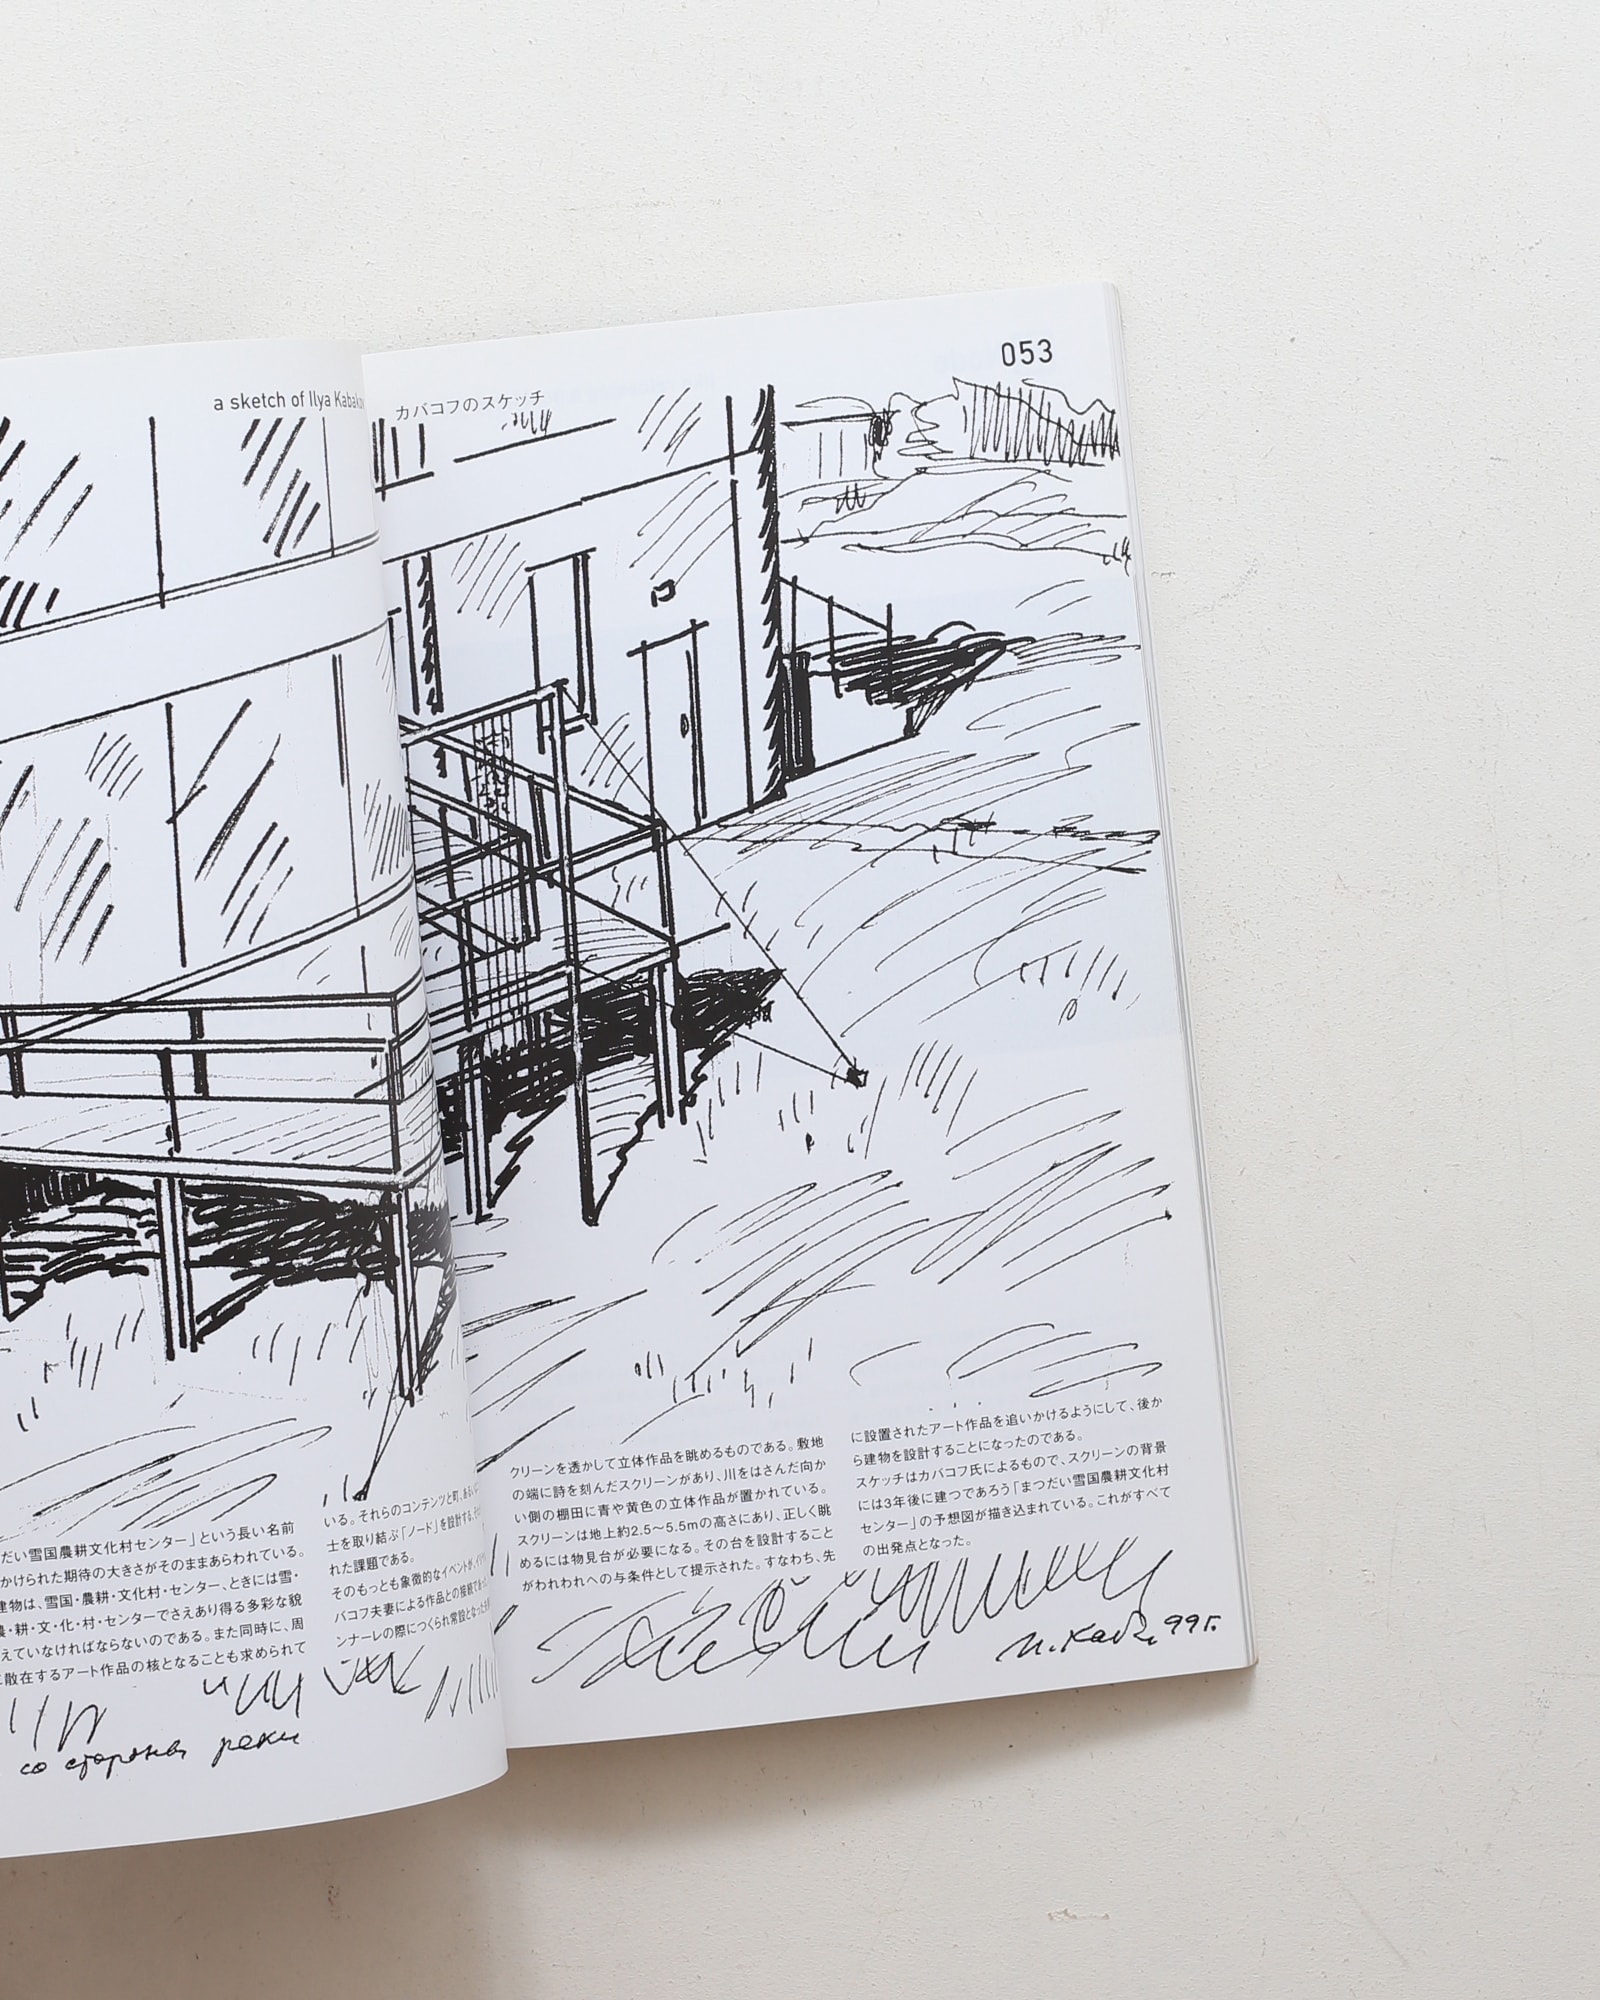 a sketch of Ilya Kabakov
カバコフのスケッチ
053
だい雪国農耕文化村センター」という長い名前
かけられた期待の大きさがそのままあらわれている。
建物は、雪国・農耕・文化村・センター、ときには雪・
農・耕・文・化・村・センターでさえあり得る多彩な貌
えていなければならないのである。また同時に、周
散在するアート作品の核となることも求められて
いる。それらのコンテンツと町、
士を取り結ぶ「ノード」を設計する
れた課題である。
そのもっとも象徴的なイベントが、
バコフ夫妻による作品との接続であった
ンナーレの際につくられ常設となった
クリーンを透かして立体作品を眺めるものである。敷地
の端に詩を刻んだスクリーンがあり、川をはさんだ向か
い側の棚田に青や黄色の立体作品が置かれている。
スクリーンは地上約2.5〜5.5mの高さにあり、正しく眺
めるには物見台が必要になる。その台を設計すること
がわれわれへの与条件として提示された。すなわち、先
に設置されたアート作品を追いかけるようにして、後か
ら建物を設計することになったのである。
スケッチはカバコフ氏によるもので、スクリーンの背景
には3年後に建つであろう「まつだい雪国農耕文化村
センター」の予想図が描き込まれている。これがすべて
の出発点となった。
со стороны реки
99г.